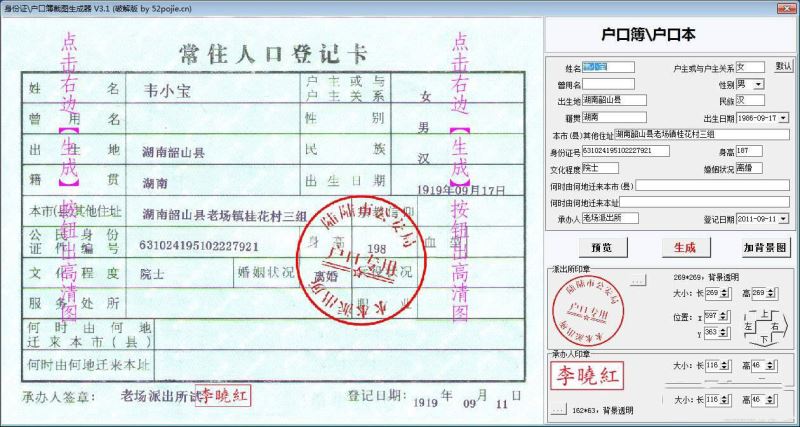 身份证\户口簿截图生成器 V3.1 (破解版 by 52pojie.cn)
常住人口登记卡
点击右边【生成】按钮出高清图
点击右边【生成】按钮出高清图
姓名 韦小宝 户主或与户主关系 女
曾用名 性别 男
出生地 湖南韶山县 民族 汉
籍贯 湖南 出生日期 1919年09月17日
本市(县)其他住址 湖南韶山县老场镇桂花村三组
公民身份证件编号 631024195102227921 身高 198 血型
文化程度 院士 婚姻状况 离婚
服务处所 职业
何时由何地迁来本市(县)
何时由何地迁来本地址
陆陆市公安局
户口专用
水水派出所
承办人签章: 老场派出所试 李曉紅 登记日期: 1919 年 09 月 11 日
户口簿\户口本
姓名 韦小宝 户主或与户主关系 女 默认
曾用名 性别 男
出生地 湖南韶山县 民族 汉
籍贯 湖南 出生日期 1986-09-17
本市(县)其他住址 湖南韶山县老场镇桂花村三组
身份证号 631024195102227921 身高 187
文化程度 院士 婚姻状况 离婚
何时由何地迁来本市(县)
何时由何地迁来本地址
承办人 老场派出所 登记日期 2011-09-11
预览 生成 加背景图
派出所印章
...
269*269, 背景透明
陆陆市公安局
户口专用
水水派出所
大小: 长 269 高 269
位置: X 597
Y 363
上
左 右
下
承办人印章
李曉紅
大小: 长 116 高 46
大小: 长 116 高 46
... 162*63, 背景透明